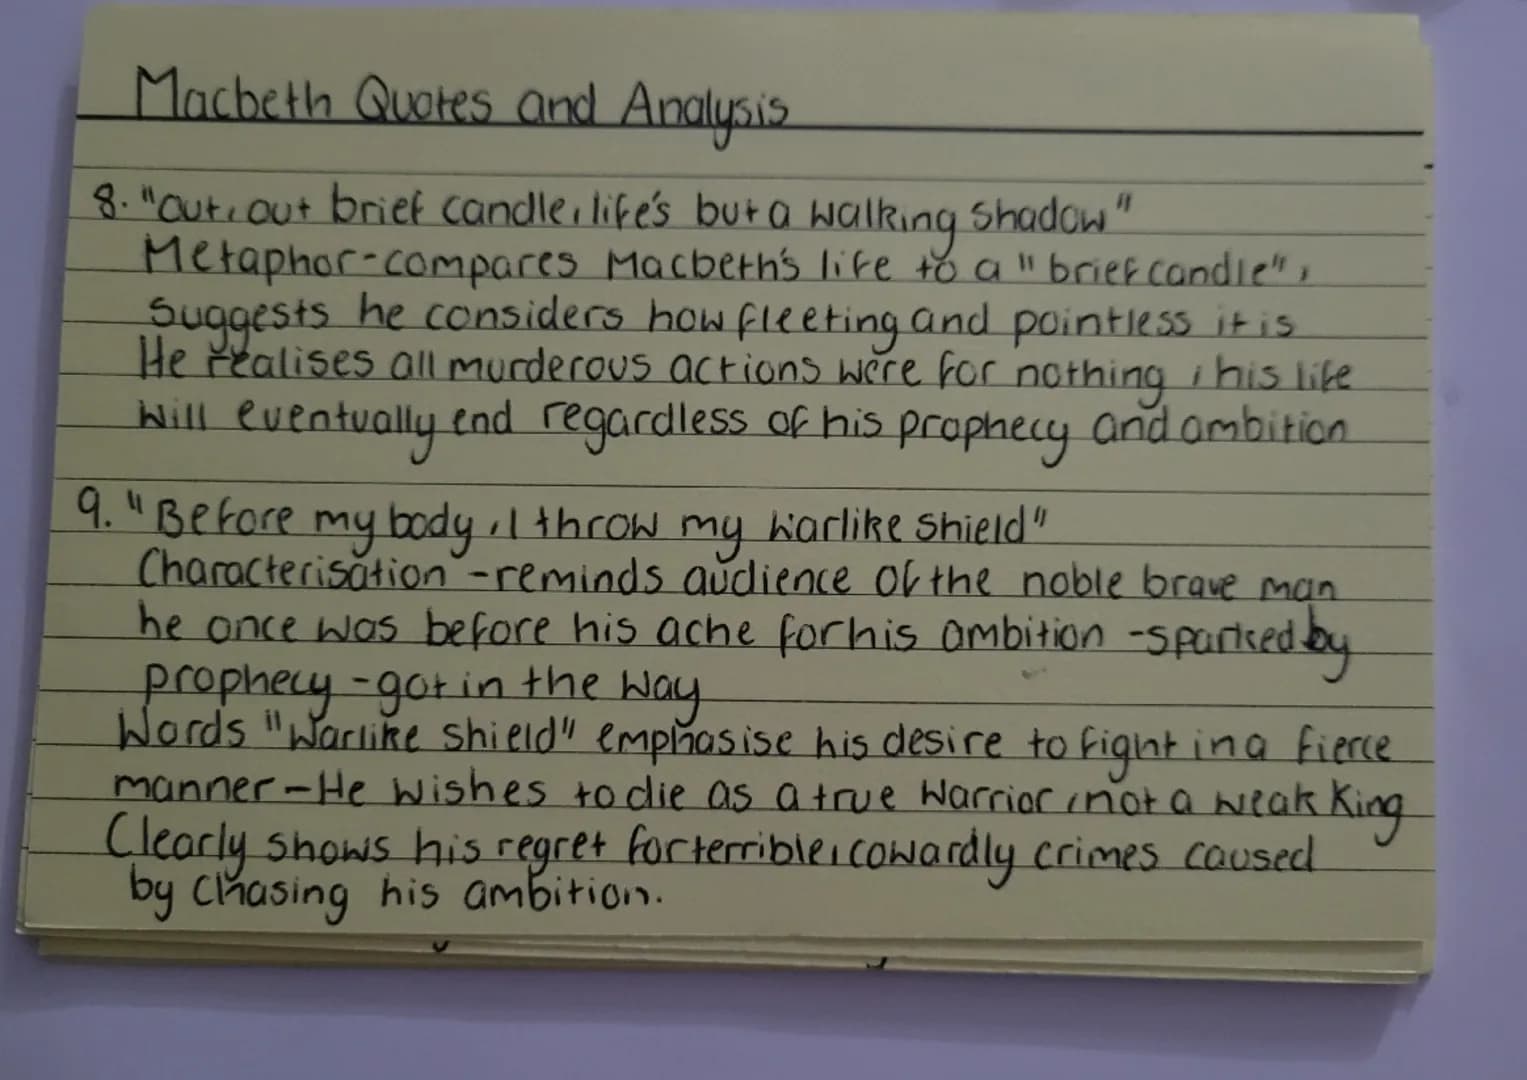 Macbeth Quotes and Analysis
8. "Out, out brief candle, life's but a walking shadow"
Metaphor-compares Macbeth's life to a "brief candle",
suggests he considers how fleeting and pointless it is
He realises all murderous actions were for nothing, his life
will eventually end regardless of his prophecy and ambition
9. "Before my body, I throw my warlike shield"
Characterisation -reminds audience of the noble brave man
he once was before his ache for his ambition -sparked by
prophecy -got in the way
Words "Warlike shield" emphasise his desire to fight in a fierce
manner-He wishes to die as a true warrior, not a weak king
Clearly shows his regret for terrible, cowardly crimes caused
by chasing his ambition.